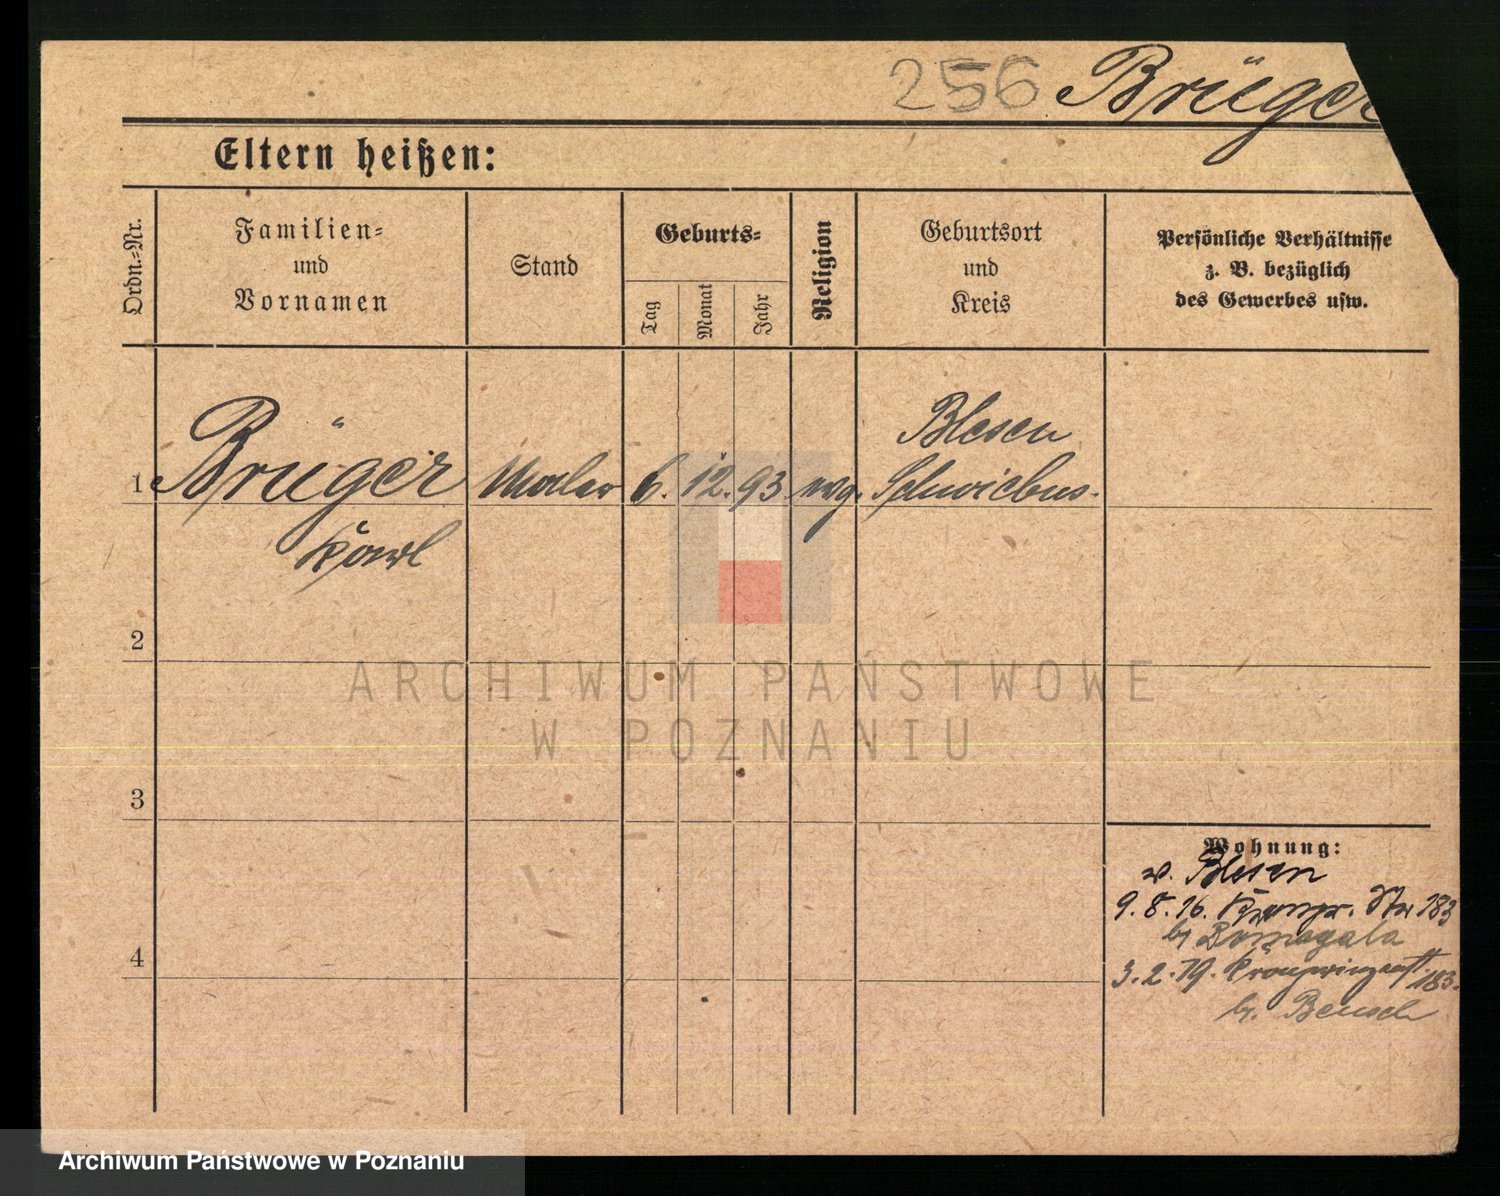 256 Brüger
Eltern heißen:
Ordn.=Nr.
Familien=
und
Vornamen
Stand
Geburts=
Tag
Monat
Jahr
Religion
Geburtsort
und
Kreis
Persönliche Verhältnisse
z. B. bezüglich
des Gewerbes usw.
1 Brüger Maler 6. 12. 93 evg. Blesen
Schwiebus.
Karl
2
3
4
Wohnung:
v. Blesen
9. 8. 16. Kronpr. Str 183
b/ Domagala
3. 2. 19. Kronprinzenstr. 183.
b/. Bensch
ARCHIWUM PAŃSTWOWE
W POZNANIU
Archiwum Państwowe w Poznaniu